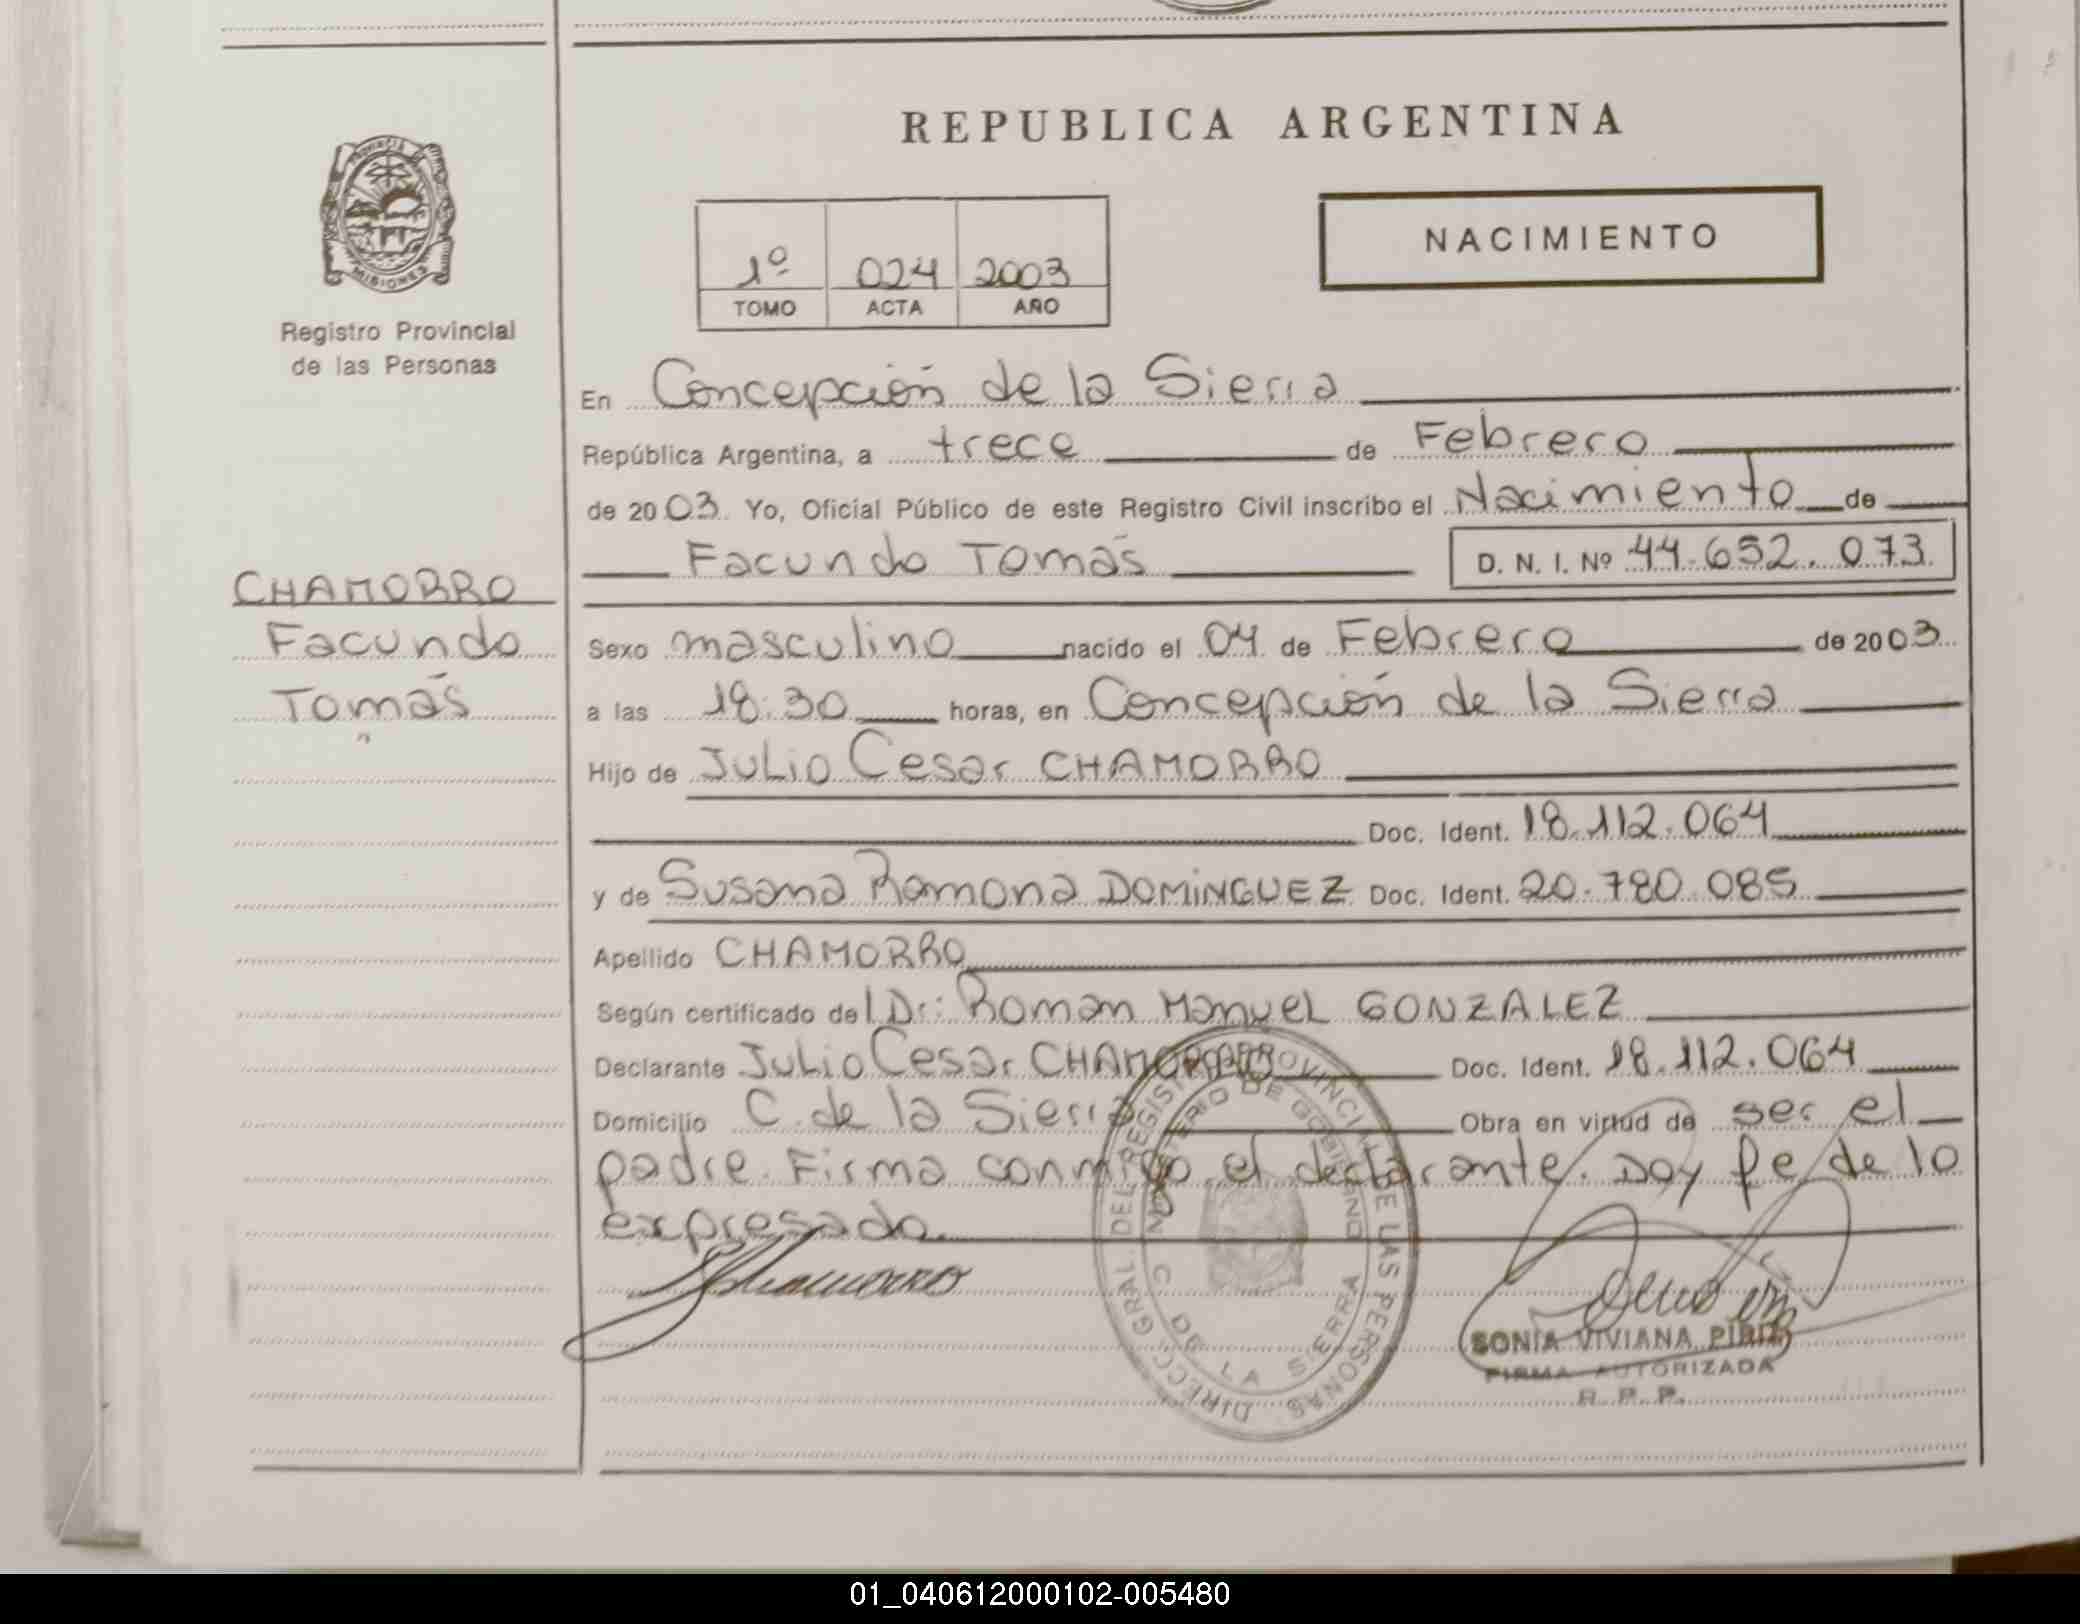 REPUBLICA ARGENTINA
PROVINCIA
MISIONES
Registro Provincial
de las Personas
1º 024 2003
TOMO ACTA AÑO
NACIMIENTO
En Concepción de la Sierra
República Argentina, a trece de Febrero
de 2003 Yo, Oficial Público de este Registro Civil inscribo el Nacimiento de
Facundo Tomás D. N. I. Nº 44.652.073
CHAMORRO
Facundo
Tomás
Sexo masculino nacido el 04 de Febrero de 2003
a las 18:30 horas, en Concepción de la Sierra
Hijo de Julio Cesar CHAMORRO
Doc. Ident. 18.112.064
y de Susana Ramona DOMINGUEZ Doc. Ident. 20.780.085
Apellido CHAMORRO
Según certificado del Dr: Roman Manuel GONZALEZ
Declarante Julio Cesar CHAMORRO Doc. Ident. 18.112.064
Domicilio C. de la Sierra Obra en virtud de ser el
padre. Firma conmigo el declarante. Doy fe de lo
expresado.
Chamorro
DIRECC. GRAL. DEL REGISTRO PROVINCIAL DE LAS PERSONAS
MINISTERIO DE GOBIERNO
C. DE LA SIERRA
SONIA VIVIANA PIRIZ
FIRMA AUTORIZADA
R. P. P.
01_040612000102-005480